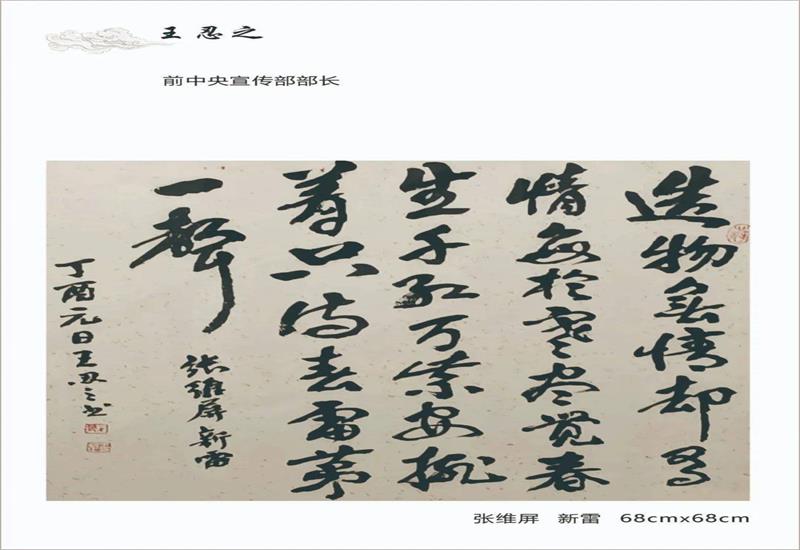 王忍之
前中央宣传部部长
造物無情却有
情每於寒尽覺春
生千红万紫安排
着只待春雷第
一聲
张维屏新雷
丁酉元日王忍之书
张维屏 新雷 68cmx68cm